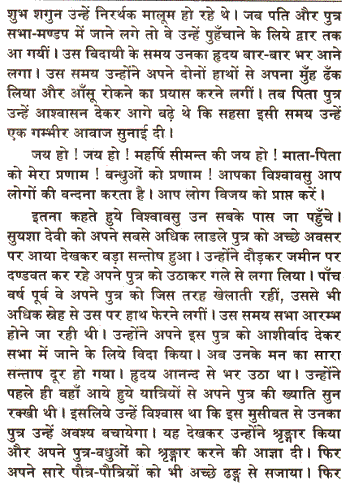 शुभ शगुन उन्हें निरर्थक मालूम हो रहे थे। जब पति और पुत्र
सभा-मण्डप में जाने लगे तो वे उन्हें पहुँचाने के लिये द्वार तक
आ गयीं। उस बिदायी के समय उनका हृदय बार-बार भर आने
लगा। उस समय उन्होंने अपने दोनों हाथों से अपना मुँह ढंक
लिया और आँसू रोकने का प्रयास करने लगीं। तब पिता पुत्र
उन्हें आश्वासन देकर आगे बढ़े थे कि सहसा इसी समय उन्हें
एक गम्भीर आवाज सुनाई दी।
जय हो! जय हो! महर्षि सीमन्त की जय हो! माता-पिता
को मेरा प्रणाम! बन्धुओं को प्रणाम! आपका विश्वावसु आप
लोगों की वन्दना करता है। आप लोग विजय को प्राप्त करें।
इतना कहते हुये विश्वावसु उन सबके पास जा पहुँचे।
सुयशा देवी को अपने सबसे अधिक लाडले पुत्र को अच्छे अवसर
पर आया देखकर बड़ा सन्तोष हुआ। उन्होंने दौड़कर जमीन पर
दण्डवत कर रहे अपने पुत्र को उठाकर गले से लगा लिया। पाँच
वर्ष पूर्व वे अपने पुत्र को जिस तरह खेलाती रहीं, उससे भी
अधिक स्नेह से उस पर हाथ फेरने लगीं। उस समय सभा आरम्भ
होने जा रही थी। उन्होंने अपने इस पुत्र को आशीर्वाद देकर
सभा में जाने के लिये विदा किया। अब उनके मन का सारा
सन्ताप दूर हो गया। हृदय आनन्द से भर उठा था। उन्होंने
पहले ही वहाँ आये हुये यात्रियों से अपने पुत्र की ख्याति सुन
रक्खी थी। इसलिये उन्हें विश्वास था कि इस मुसीबत से उनका
पुत्र उन्हें अवश्य बचायेगा। यह देखकर उन्होंने श्रृङ्गार किया
और अपने पुत्र-बधुओं को श्रृङ्गार करने की आज्ञा दी। फिर
अपने सारे पौत्र-पौत्रियों को भी अच्छे ढङ्ग से सजाया। फिर